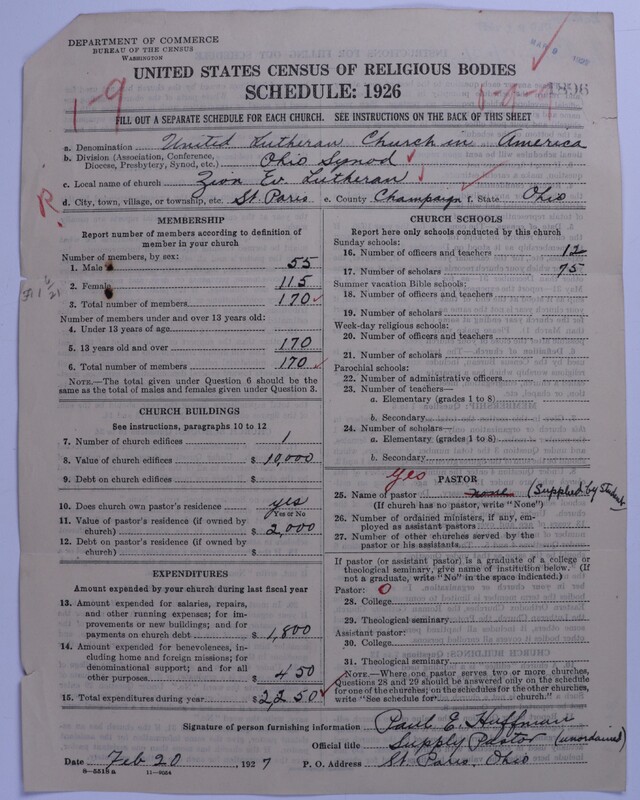 DEPARTMENT OF COMMERCE
BUREAU OF THE CENSUS
WASHINGTON
UNITED STATES CENSUS OF RELIGIOUS BODIES
SCHEDULE: 1926
1-9
FILL OUT A SEPARATE SCHEDULE FOR EACH CHURCH. SEE INSTRUCTIONS ON THE BACK OF THIS SHEET
a. Denomination United Lutheran Church in America
b. Division (Association, Conference, Diocese, Presbytery, Synod, etc.) Ohio Synod
c. Local name of church Zion Ev. Lutheran
d. City, town, village, or township, etc. St. Paris e. County Champaign f. State Ohio
R.
MEMBERSHIP
Report number of members according to definition of member in your church
Number of members, by sex:
1. Male 55
2. Female 115
3. Total number of members 170
Number of members under and over 13 years old:
4. Under 13 years of age
5. 13 years old and over 170
6. Total number of members 170
NOTE.—The total given under Question 6 should be the same as the total of males and females given under Question 3.
CHURCH BUILDINGS
See instructions, paragraphs 10 to 12
7. Number of church edifices 1
8. Value of church edifices $ 10,000
9. Debt on church edifices $
10. Does church own pastor's residence yes
Yes or No
11. Value of pastor's residence (if owned by church) $ 2,000
12. Debt on pastor's residence (if owned by church) $
EXPENDITURES
Amount expended by your church during last fiscal year
13. Amount expended for salaries, repairs, and other running expenses; for improvements or new buildings; and for payments on church debt $ 1,800
14. Amount expended for benevolences, including home and foreign missions; for denominational support; and for all other purposes $ 450
15. Total expenditures during year $ 2250
CHURCH SCHOOLS
Report here only schools conducted by this church
Sunday schools:
16. Number of officers and teachers 12
17. Number of scholars 75
Summer vacation Bible schools:
18. Number of officers and teachers
19. Number of scholars
Week-day religious schools:
20. Number of officers and teachers
21. Number of scholars
Parochial schools:
22. Number of administrative officers
23. Number of teachers—
a. Elementary (grades 1 to 8)
b. Secondary
24. Number of scholars—
a. Elementary (grades 1 to 8)
b. Secondary
Yes PASTOR
25. Name of pastor none (Supplied by Student)
(If church has no pastor, write "None")
26. Number of ordained ministers, if any, employed as assistant pastors
27. Number of other churches served by the pastor or his assistants
If pastor (or assistant pastor) is a graduate of a college or theological seminary, give name of institution below. (If not a graduate, write "No" in the space indicated.)
Pastor: 0
28. College
29. Theological seminary
Assistant pastor:
30. College
31. Theological seminary
NOTE.—Where one pastor serves two or more churches, Questions 28 and 29 should be answered only on the schedule for one of the churches; on the schedules for the other churches, write "See schedule for church."
Signature of person furnishing information Paul E. Huffman
Official title Supply Pastor (unordained)
Date Feb 20, 1927 P. O. Address St. Paris, Ohio
8-5518a 11-9054